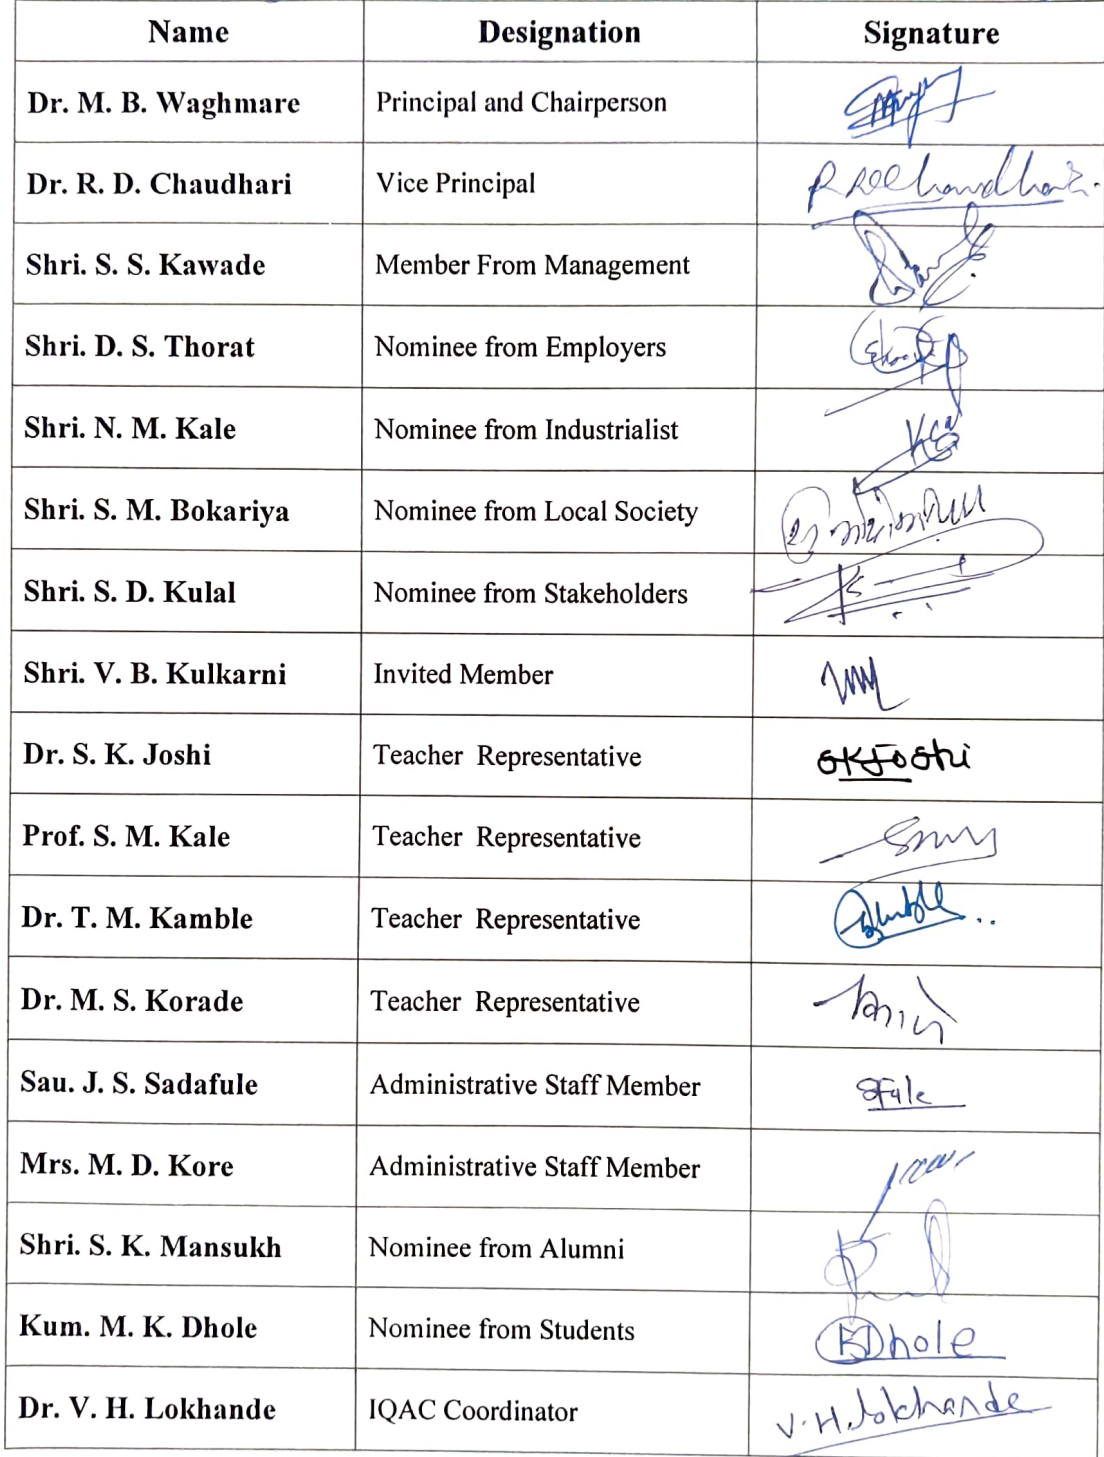 Name Designation Signature
Dr. M. B. Waghmare Principal and Chairperson
Dr. R. D. Chaudhari Vice Principal
Shri. S. S. Kawade Member From Management
Shri. D. S. Thorat Nominee from Employers
Shri. N. M. Kale Nominee from Industrialist
Shri. S. M. Bokariya Nominee from Local Society
Shri. S. D. Kulal Nominee from Stakeholders
Shri. V. B. Kulkarni Invited Member
Dr. S. K. Joshi Teacher Representative SKJoshi
Prof. S. M. Kale Teacher Representative
Dr. T. M. Kamble Teacher Representative
Dr. M. S. Korade Teacher Representative
Sau. J. S. Sadafule Administrative Staff Member
Mrs. M. D. Kore Administrative Staff Member
Shri. S. K. Mansukh Nominee from Alumni
Kum. M. K. Dhole Nominee from Students Dhole
Dr. V. H. Lokhande IQAC Coordinator V.H.Lokhande